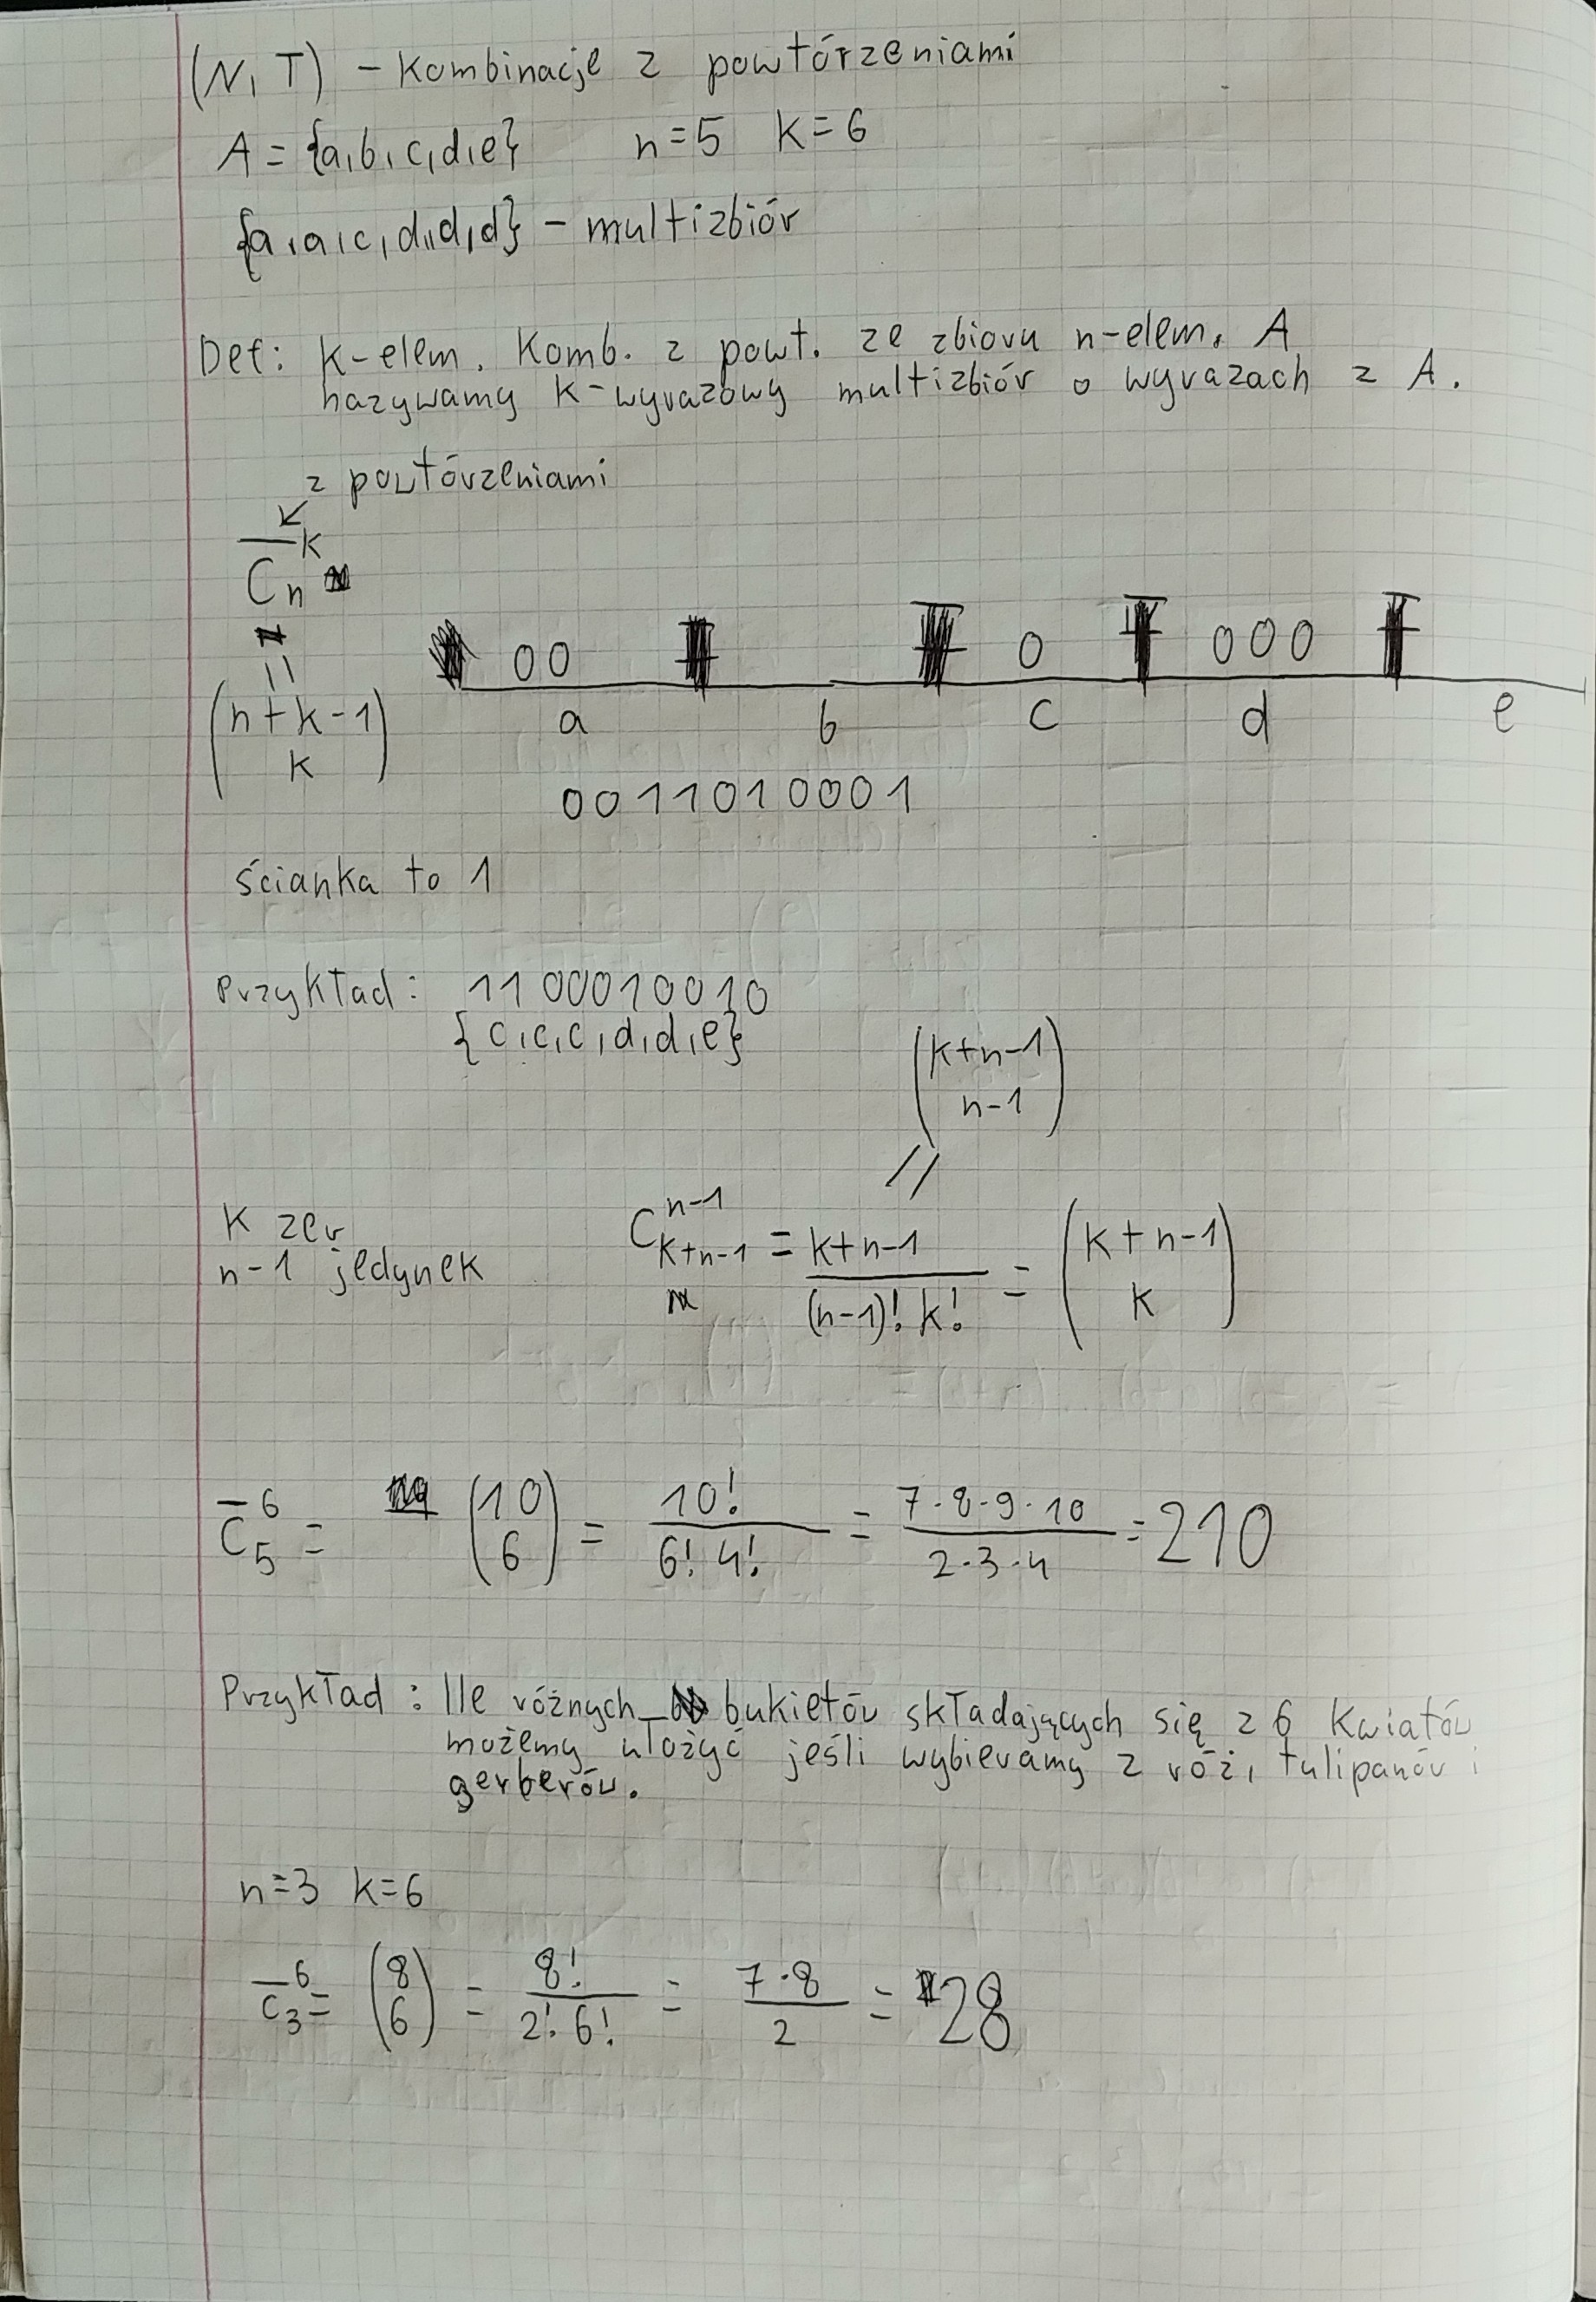 (N, T) - Kombinacje z powtórzeniami
A = {a, b, c, d, e} n=5 k=6
{a, a, c, d, d, d} - multizbiór
Def: k-elem. Komb. z powt. ze zbioru n-elem. A
nazywamy k-wyrazowy multizbiór o wyrazach z A.
z powtórzeniami
C̅ₙᵏ
=
(n+k-1)
k
00 0 000
a b c d e
0011010001
ścianka to 1
Przykład: 1100010010
{c, c, c, d, d, e}
(k+n-1)
n-1
//
K zer
n-1 jedynek
C^{n-1}_{k+n-1} = k+n-1 / (n-1)! k! = (k+n-1 / k)
C̅₅⁶ = (10 / 6) = 10! / 6! 4! = 7·8·9·10 / 2·3·4 = 210
Przykład: Ile różnych bukietów składających się z 6 kwiatów
możemy ułożyć jeśli wybieramy z róż, tulipanów i
gerberów.
n=3 k=6
C̅₃⁶ = (8 / 6) = 8! / 2! 6! = 7·8 / 2 = 28